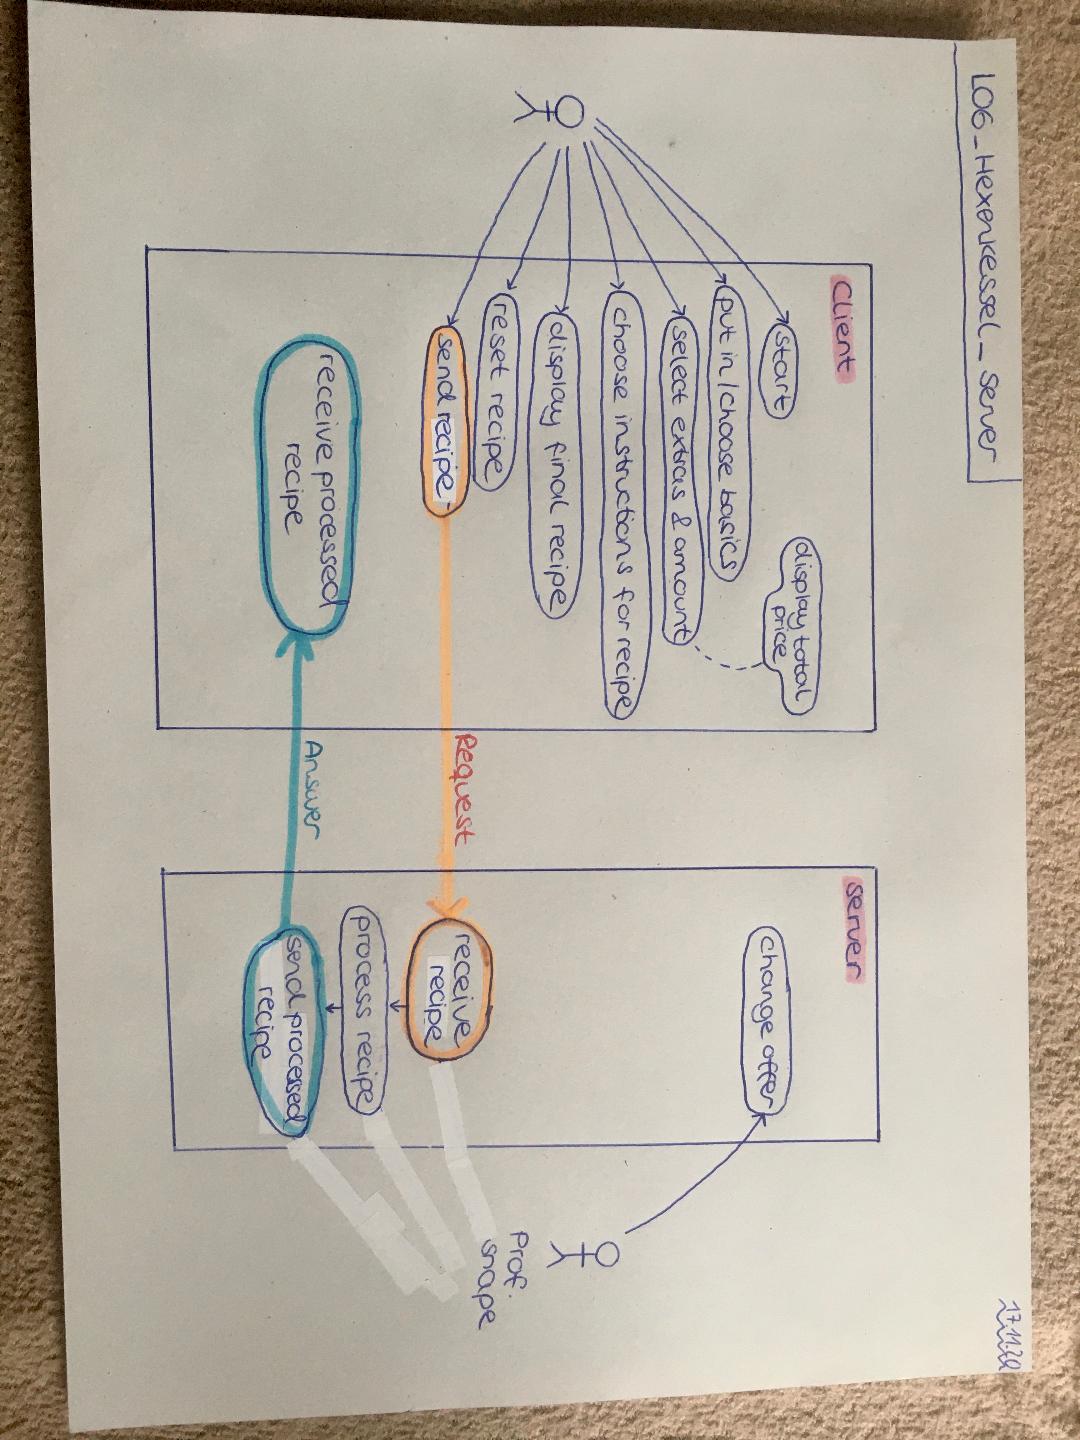 L06_Hexenkessel_Server
17.11.20
Client
start
display total
price
put in / choose basics
select extras & amount
choose instructions for recipe
display final recipe
reset recipe
send recipe
receive processed
recipe
Request
Answer
server
change offer
receive
recipe
process recipe
send processed
recipe
Prof.
snape